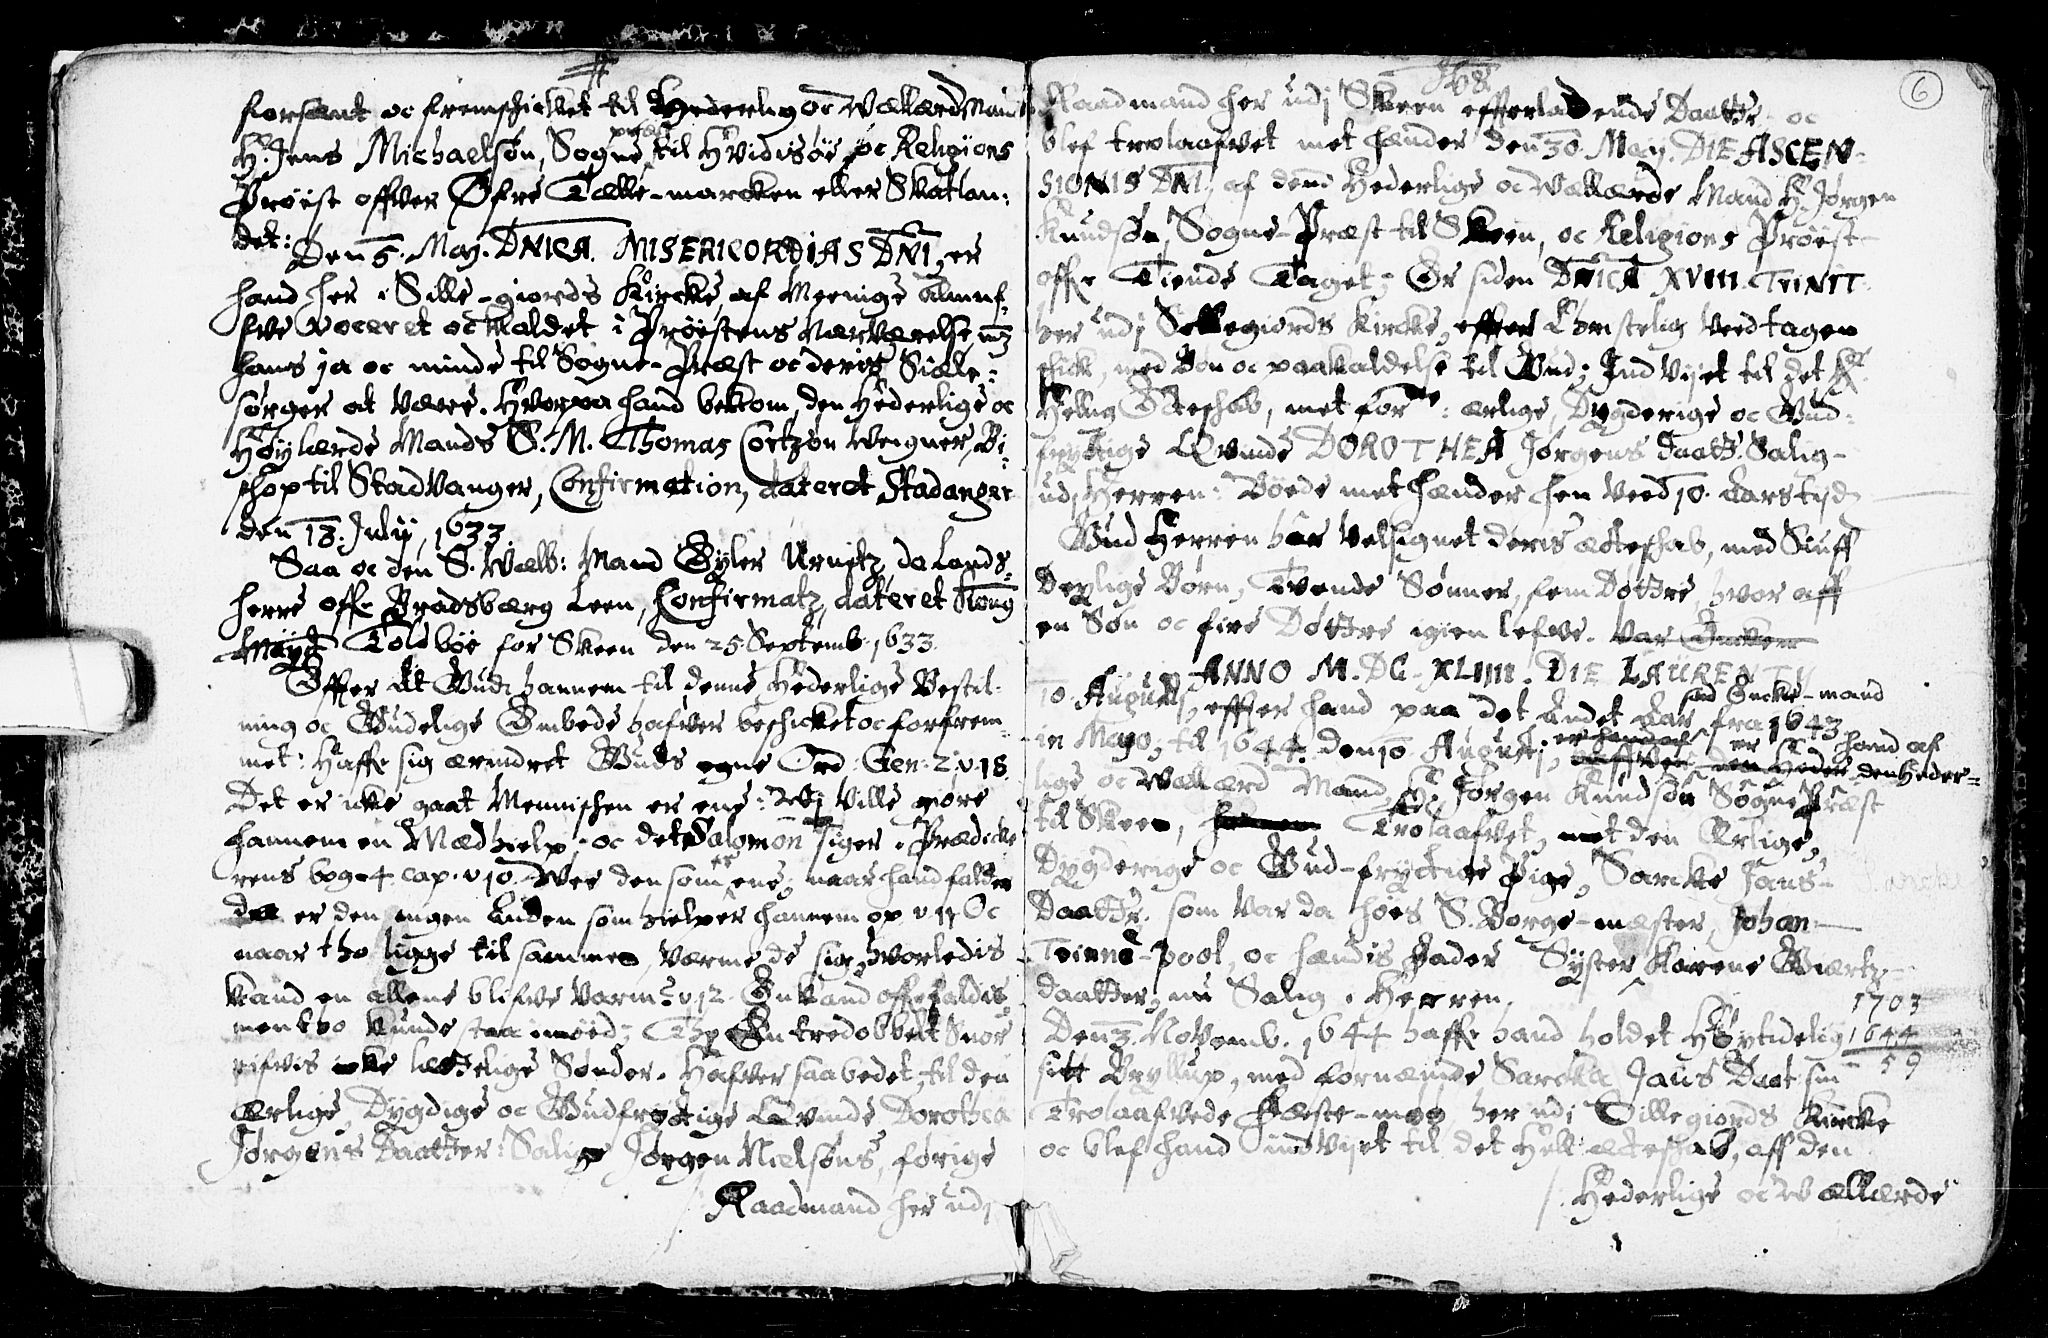 forsænt oc fremschicket til Hederlig oc Wællærd Mand
H. Jens Michaelsøn, Sogne præst til Hvidisøe oc Religions
Prøist offver Øfre Tælle-marcken eller Skatlan:
det:
Den 5. May. DNICA. MISERICORDIAS DNI, er
hand her i Sille-giords Kircke af Meenige almuf-
fve voceret oc Kaldet i Prøistens Nærværelse
hans ja oc minde til Sogne-Præst oc deris Siæle-
sørger at være. Hvorpaa hand bekom, den Hederlige oc
Høylærde Mands S. M. Thomas Cortzøn Wegner, Bi-
schop til Stadvanger, Confirmation, dateret Stadanger
den 18. July, 1633
Saa oc den S. Wælb: Mand Øyler Urnitz, da Lands-
herre offr Bradsbærg Leen, Confirmatz, dateret Kong
Mayts Toldboe for Skeen den 25. Septemb. 1633.
Effter at Gud hannem til denne Hederlige Bestil-
ning oc Gudelige Embede hafver beschicket oc forfrem-
met: Haffr sig ærindret Guds egne Ord. Gen: 2. v. 18.
Det er icke gaat Mennischen er ene: Wi ville giøre
hannem en Mædhielp, oc det Salomon siger i Prædicke
rens bog 4. cap. v 10. Vee den som er ene, naar hand falder
da er der ingen anden som hielper hannem op v 11 Oc
naar tho ligge til sammen, værme de sig, hvorledis
kand en allene blifve varm? v 12. En kand offrfaldis
men tvo kunde staa imoed; Thj En tredobbelt Snor
rifvis icke lættelige Sønder. Hafver saa bedet til den
Ærlige, Dygdige oc Gudfrygtige Qvinde Dorothea
Jørgens Daatter: Salige Jørgen Nielsøns, førige
Raadmand her udj
6
Raadmand her udj Skeen effterladende Daatter oc
blef trolaafvet met hænder den 30. May. DIE ASCEN-
SIONIS DNI, af dend Hederlige oc Wællærde Mand H. Jørgen
Knudsøn, Sogne-Præst til Skeen, oc Religions Prøist
offr Tiende Taget; Er siden DNICA XVIII. TRINIT.
her udj Sellegiords Kircke, effter Christelig Veedtagen
schick, med Bøn oc paakaldelse til Gud; Ind Vijet til det
Hellig Ecteschab, met forne: ærlige, Dygderige oc Gud-
frygtige Qvinde DOROTHEA Jørgens daatter. Salig
udj Herren: Boede met hænder hen Veed 10. Aars tijd
Gud Herren har Velsignet deris ecteschab, med Siuff
Deylige Børn, Tvende Sønner, fem Døttre, hvor aff
en Søn oc fire Døttre igien lefve. Var Enckem
ANNO M. DC. XLIIII. DIE LAURENTY
10. Augusti, effter hand paa det Andet Aar sad Encke-mand fra 1643
in Mayo, til 1644 den 10 Augusti, er hand af den Heder-
lige oc Wællærd Mand, H. Jørgen Knudsøn Sogne Præst
til Skeen, Trolaafvet, met den Ærlige,
Dygderige oc Gud-fryctige Pige, Sarcke Jans-
Daatter. som var da hoes S. Borge-mæster, Johan
Trinne-pool, oc hændis Fader Syster Karene Giærtz-
daatter, nu Salig i Herren.
Den 3. Novemb. 1644 haffr hand holdet Høytidelig
sitt Bryllup, med fornæmde Sarcka Jans Daat sin
Trolaafvede Fæste-møy her udj Sillegiords Kircke
oc blef hand indvijet til det Hell: ecteschab, aff den
Hederlige oc Wællærde
1703
1644
59